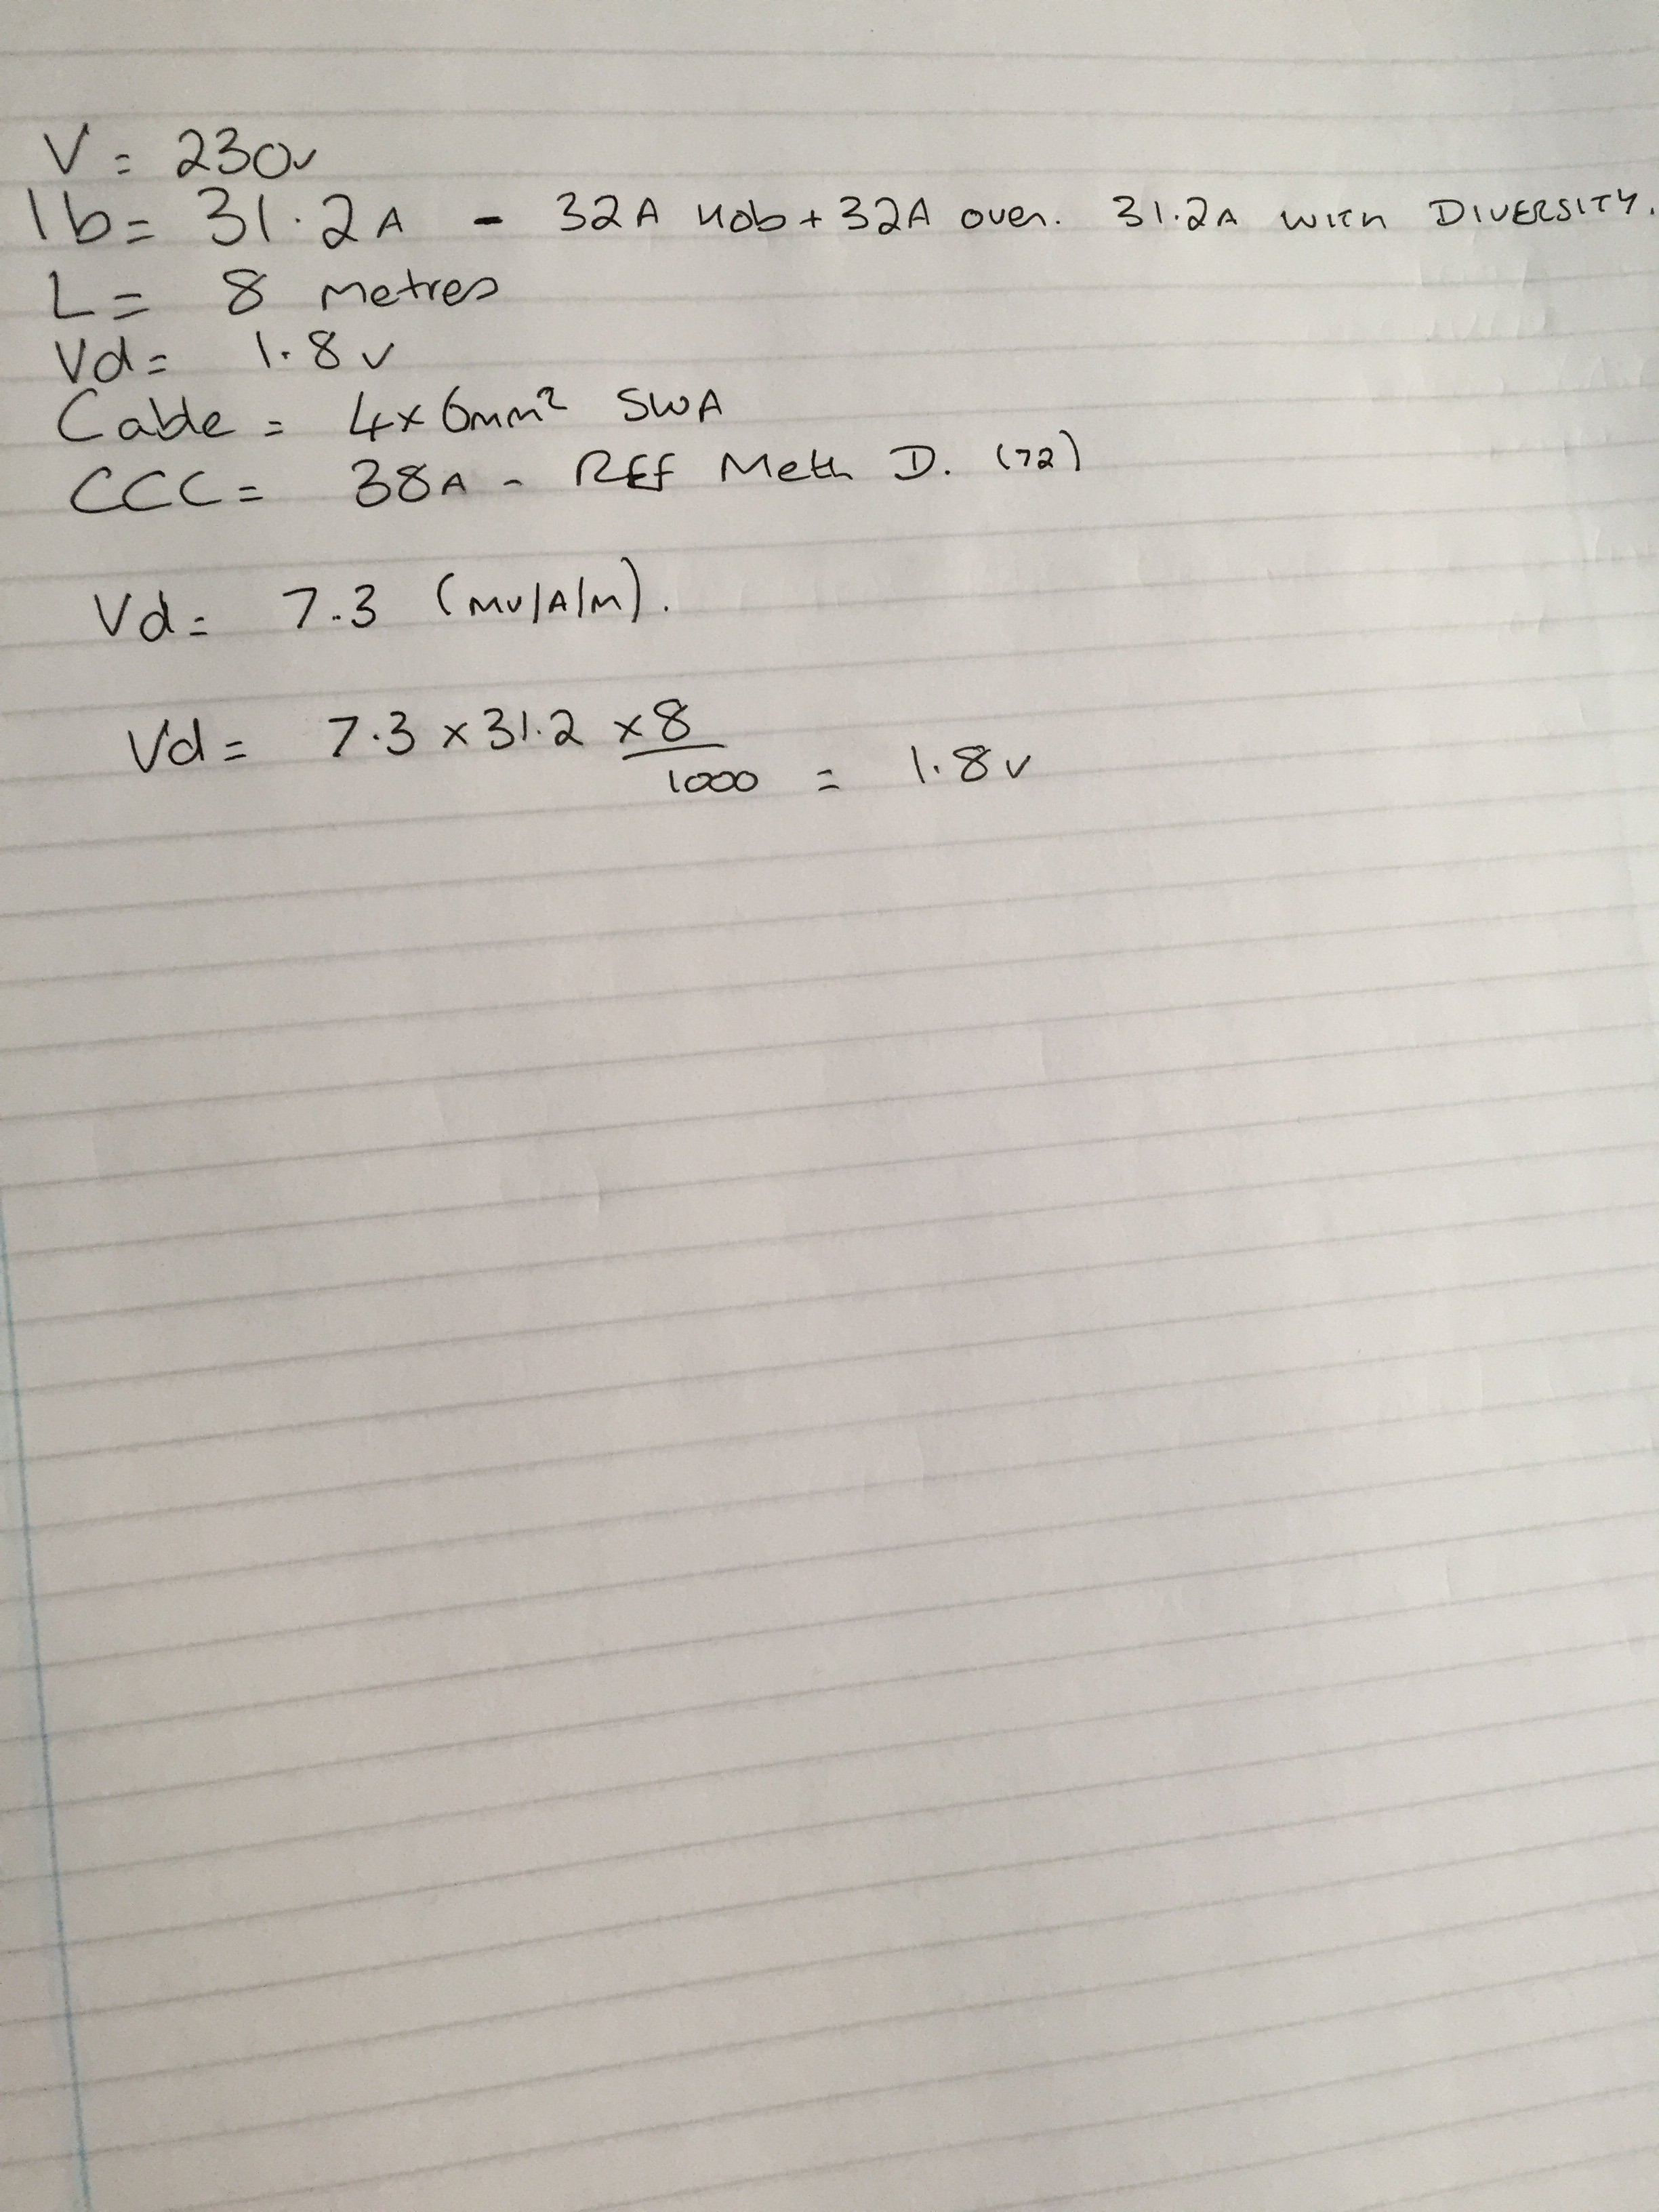 V = 230v
Ib = 31.2A - 32A Hob + 32A oven. 31.2A with DIVERSITY.
L = 8 metres
Vd = 1.8v
Cable = 4x6mm² SWA
CCC = 38A - REf Meth D. (72)
Vd = 7.3 (mv/A/m).
Vd = 7.3 x 31.2 x 8
1000 = 1.8v